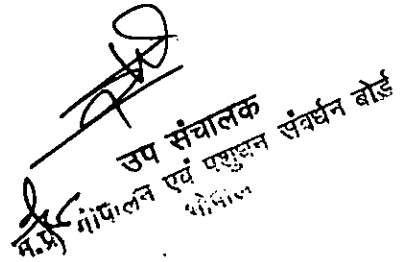 उप संचालक
म.प्र. गोपालन एवं पशुधन संवर्धन बोर्ड
भोपाल